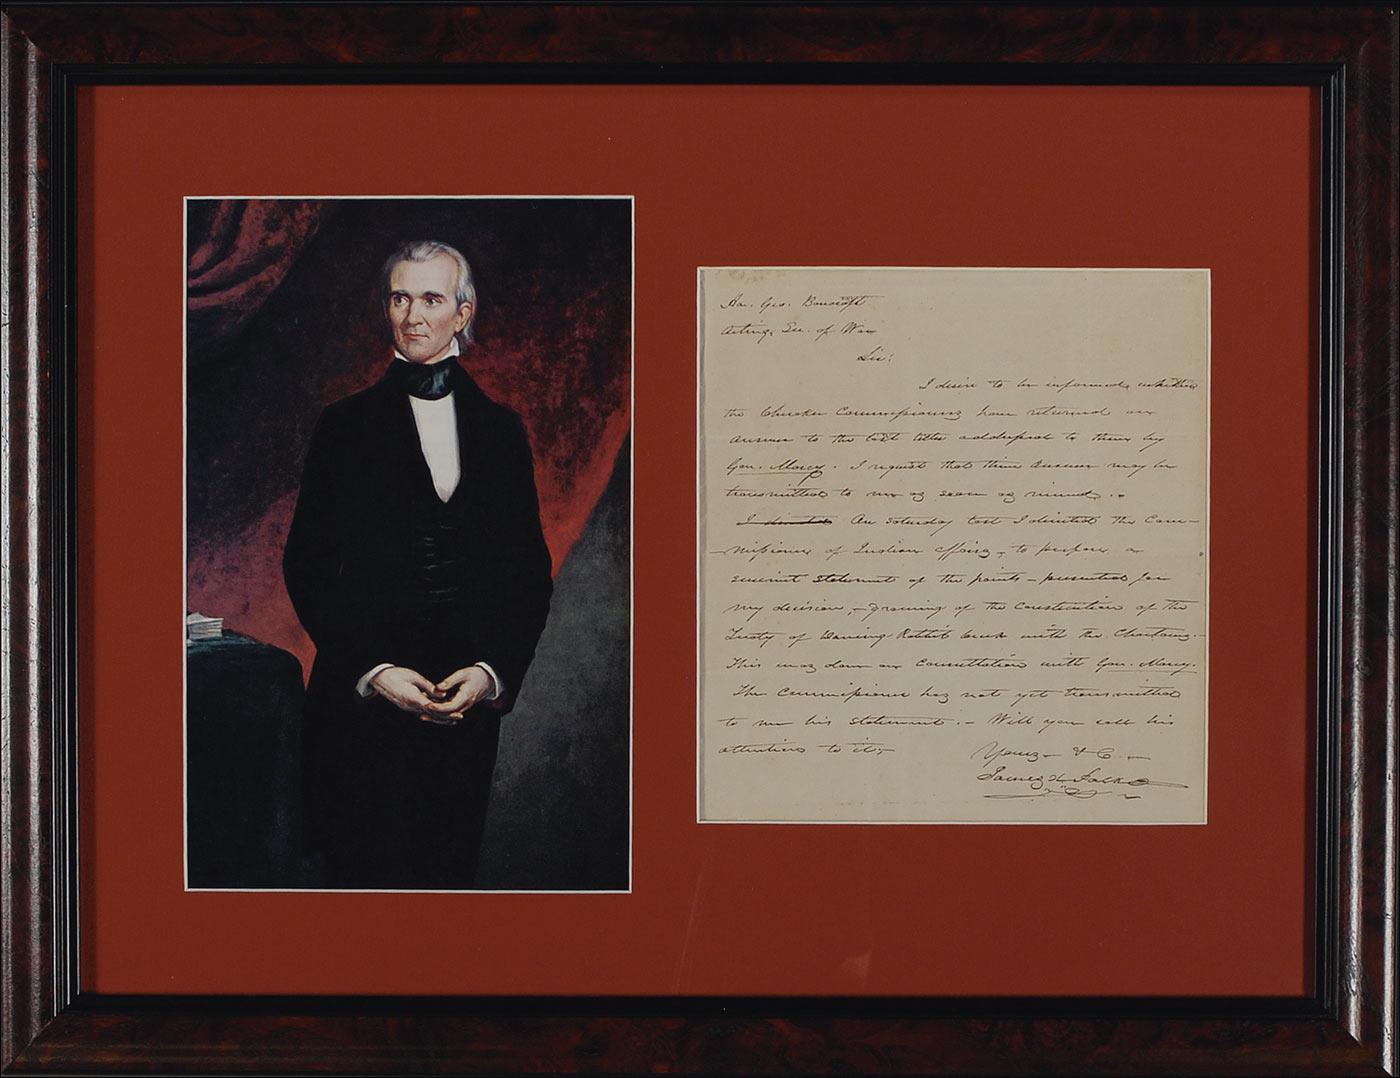 Hon. Geo. Bancroft
Acting Sec. of War
Sir:
I desire to be informed, whether
the Cherokee Commissioners have returned an
answer to the last letter addressed to them by
Gov. Marcy. I request that their answer may be
transmitted to me as soon as
I directed On Saturday last I directed the Com-
-missioner of Indian Affairs, to prepare a
succinct statement of the points - presented for
my decision, - growing of the construction of the
Treaty of Dancing Rabbit Creek with the Choctaws. -
This was done on consultation with Gov. Marcy.
The Commissioner has not yet transmitted
to me his statement. - Will you call his
attention to it; -
Yours &C. -
James K. Polk